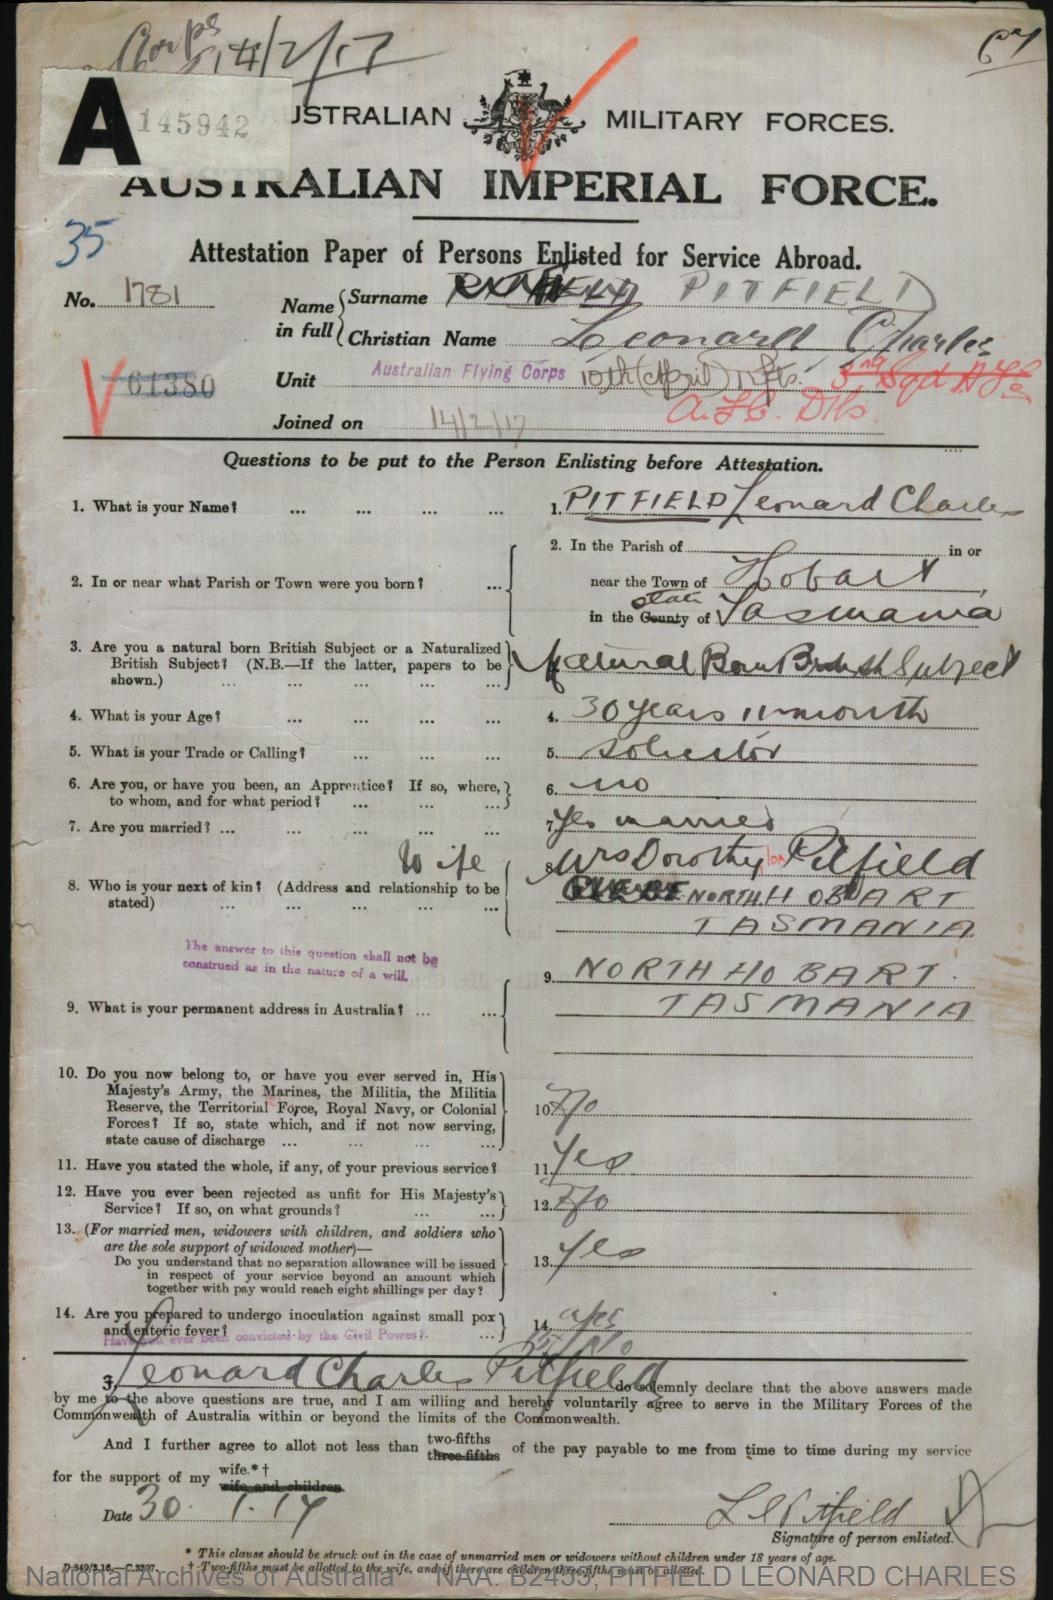 Corps
14/2/17
67
A 145942
USTRALIAN MILITARY FORCES.
AUSTRALIAN IMPERIAL FORCE.
35
Attestation Paper of Persons Enlisted for Service Abroad.
No. 1781
Name in full
Surname PITFIELD
Christian Name Leonard Charles
61380
Unit Australian Flying Corps 10th (April) Rfts. 3rd Sqd A.F.C
A.F.C. Dtls.
Joined on 14/2/17
Questions to be put to the Person Enlisting before Attestation.
1. What is your Name? ... ... ... ... 1. PITFIELD Leonard Charles
2. In or near what Parish or Town were you born? ...
2. In the Parish of in or
near the Town of Hobart,
state
in the County of Tasmania
3. Are you a natural born British Subject or a Naturalized
British Subject? (N.B.—If the latter, papers to be
shown.) ... ... ... ...
Natural Born British Subject
4. What is your Age? ... ... ... ... 4. 30 years 11 month
5. What is your Trade or Calling? ... ... ... 5. Solicitor
6. Are you, or have you been, an Apprentice? If so, where,
to whom, and for what period? ... ... ...
6. no
7. Are you married? ... ... ... ... 7. Yes married
Wife
8. Who is your next of kin? (Address and relationship to be
stated) ... ... ... ...
8. Mrs Dorothy Pitfield
NORTH HOBART
TASMANIA
The answer to this question shall not be
construed as in the nature of a will.
9. What is your permanent address in Australia? ... ...
9. NORTH HOBART.
TASMANIA
10. Do you now belong to, or have you ever served in, His
Majesty's Army, the Marines, the Militia, the Militia
Reserve, the Territorial Force, Royal Navy, or Colonial
Forces? If so, state which, and if not now serving,
state cause of discharge ... ... ... ...
10. No
11. Have you stated the whole, if any, of your previous service? 11. Yes
12. Have you ever been rejected as unfit for His Majesty's
Service? If so, on what grounds? ... ...
12. No
13. (For married men, widowers with children, and soldiers who
are the sole support of widowed mother)—
Do you understand that no separation allowance will be issued
in respect of your service beyond an amount which
together with pay would reach eight shillings per day?
13. Yes
14. Are you prepared to undergo inoculation against small pox
and enteric fever? ...
14. Yes
Have you ever been convicted by the Civil Power?
15 No
I, Leonard Charles Pitfield do solemnly declare that the above answers made
by me to the above questions are true, and I am willing and hereby voluntarily agree to serve in the Military Forces of the
Commonwealth of Australia within or beyond the limits of the Commonwealth.
And I further agree to allot not less than two-fifths three-fifths of the pay payable to me from time to time during my service
for the support of my wife.* † wife and children.
Date 30. 1. 17
L C Pitfield
Signature of person enlisted.
* This clause should be struck out in the case of unmarried men or widowers without children under 18 years of age.
D.349/3.16.—C.3397.
† Two-fifths must be allotted to the wife, and if there are children three-fifths must be allotted.
National Archives of Australia NAA: B2455, PITFIELD LEONARD CHARLES